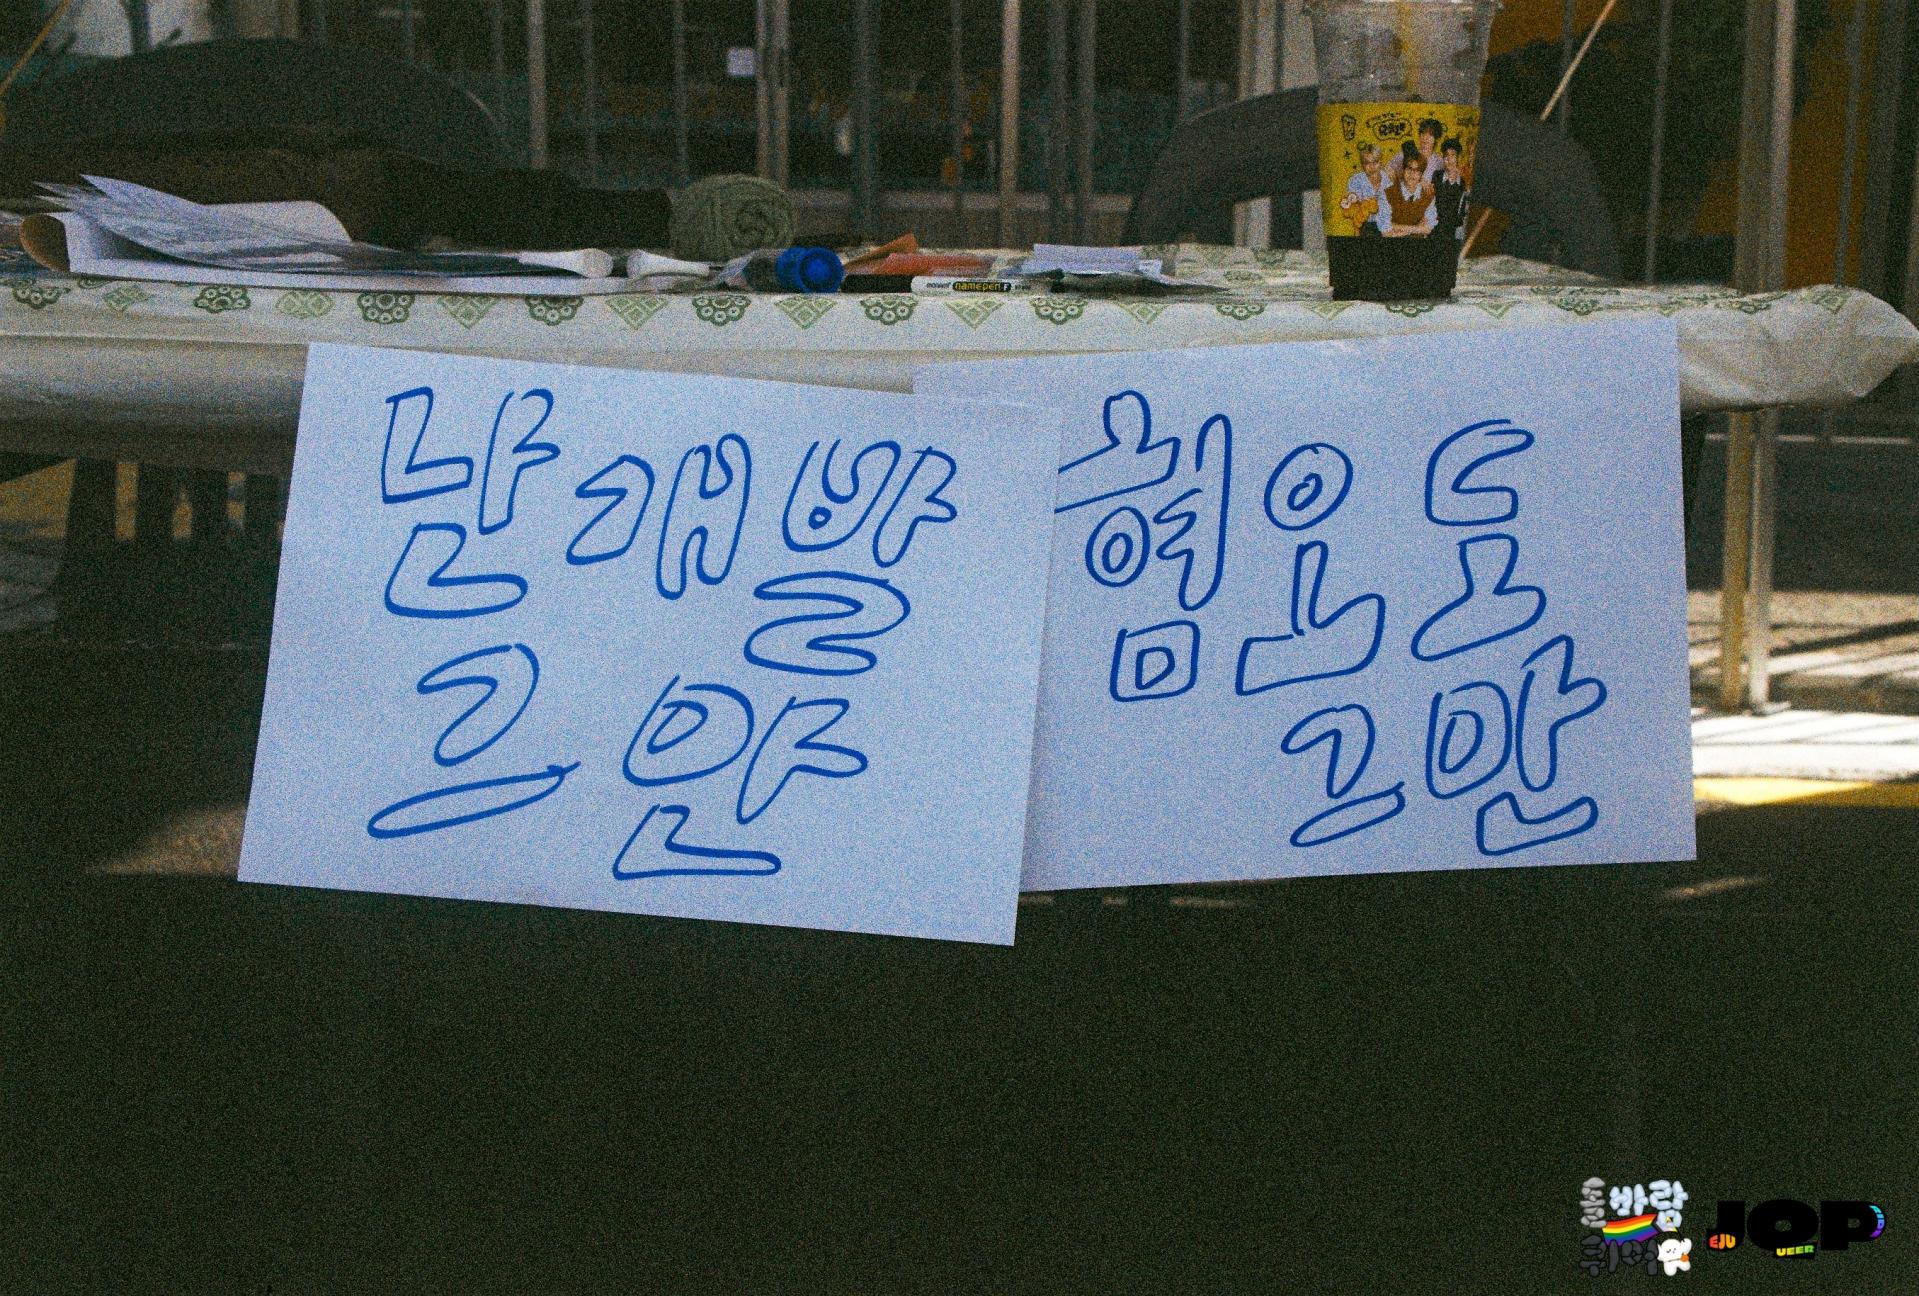 난개발
그만
혐오도
그만
monami namepen F
돌바람
퀴어
JQP
EJU
UEER